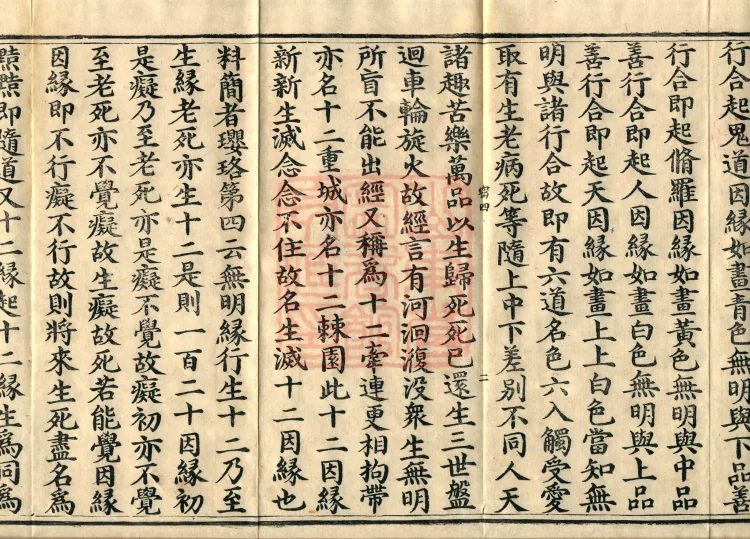 行合起鬼道因緣如畫青色無明與下品善
行合即起脩羅因緣如畫黃色無明與中品
善行合即起人因緣如畫白色無明與上品
善行合即起天因緣如畫上上白色當知無
明與諸行合故即有六道名色六入觸受愛
取有生老病死等隨上中下差別不同人天
諸趣苦樂萬品以生歸死死已還生三世盤
迴車輪旋火故經言有河洄澓没衆生無明
所盲不能出經又稱爲十二牽連更相拘帶
亦名十二重城亦名十二棘園此十二因緣
新新生滅念念不住故名生滅十二因緣也
料簡者瓔珞第四云無明緣行生十二乃至
生緣老死亦生十二是則一百二十因緣初
是癡乃至老死亦是癡不覺故癡初亦不覺
至老死亦不覺癡故生癡故死若能覺因緣
因緣即不行癡不行故則將來生死盡名爲
黠黠即隨道又十二緣起十二緣生爲同爲
二